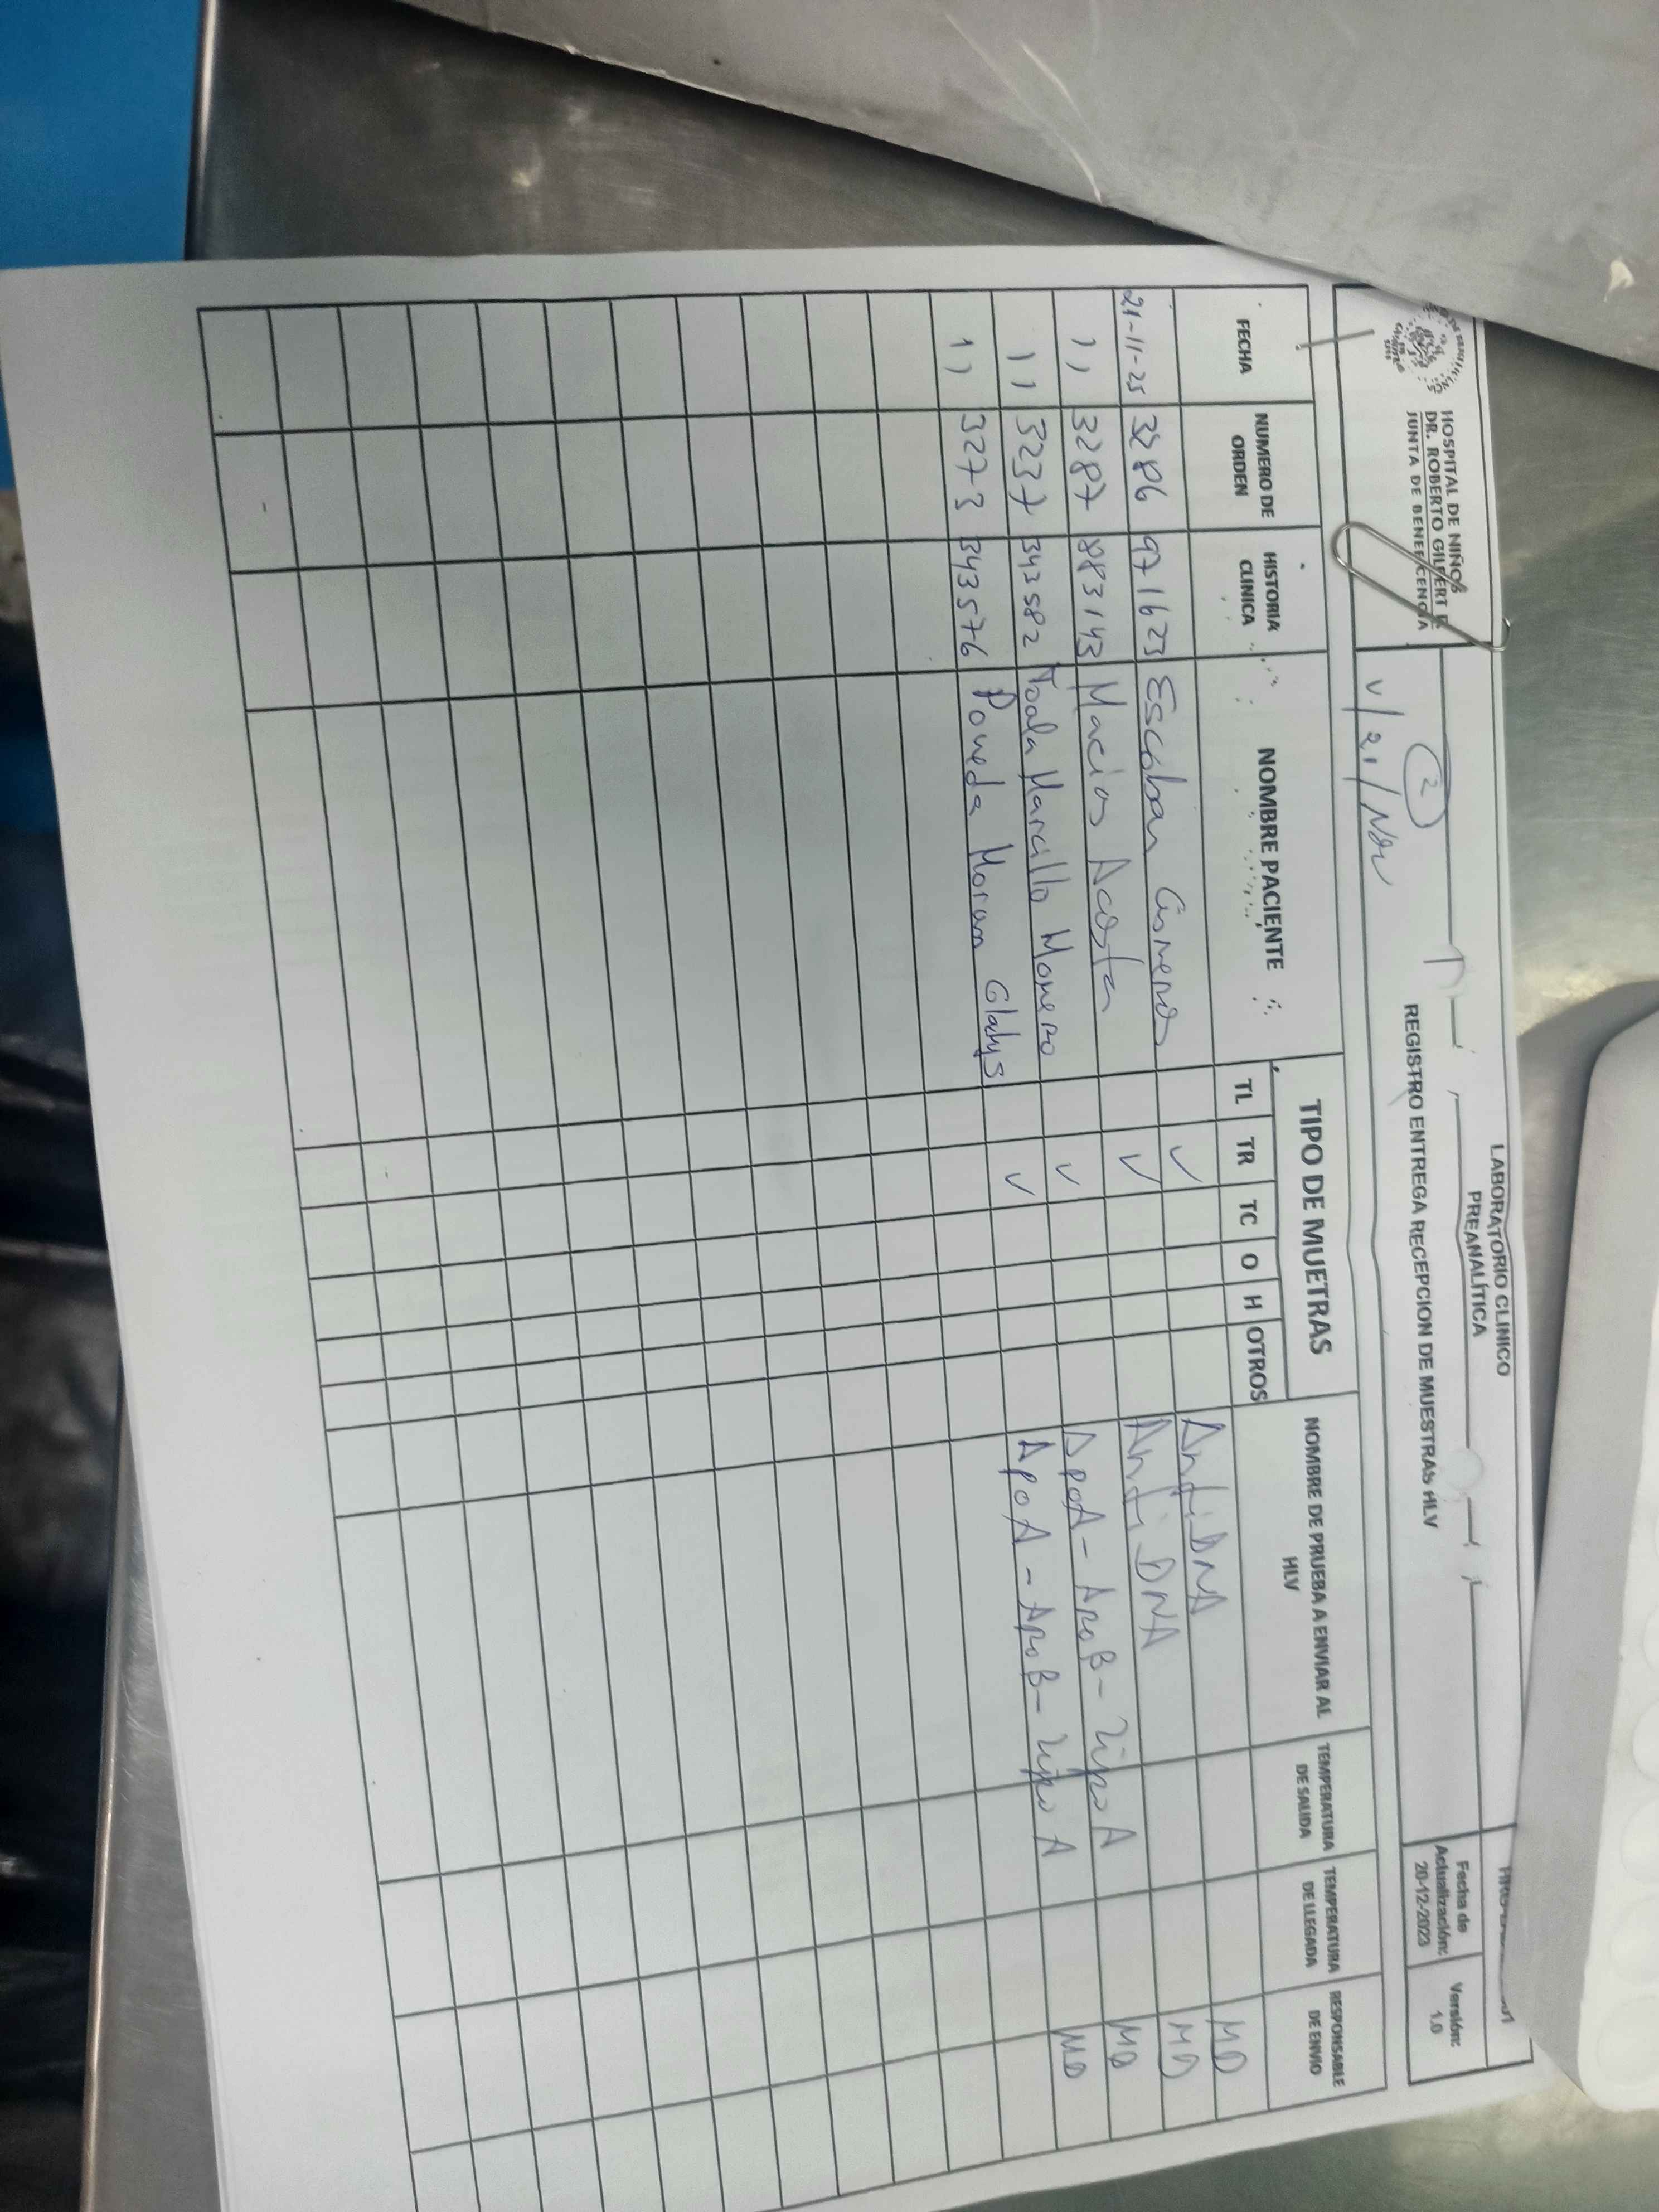 HOSPITAL DE NIÑOS
DR. ROBERTO GILBERT E
JUNTA DE BENEFICENCIA
LABORATORIO CLINICO
PREANALÍTICA
REGISTRO ENTREGA RECEPCION DE MUESTRAS HLV
Fecha de Actualización: 20-12-2023
Versión: 1.0
2
V/21/Nov
FECHA NUMERO DE ORDEN HISTORIA CLINICA NOMBRE PACIENTE TIPO DE MUETRAS NOMBRE DE PRUEBA A ENVIAR AL HLV TEMPERATURA DE SALIDA TEMPERATURA DE LLEGADA RESPONSABLE DE ENVIO
TL TR TC O H OTROS
21-11-25 3286 971623 Escobar ✓ Anti DNA MD
11 3287 883143 Macias Acosta ✓ Anti DNA MD
11 3237 343582 Toala Marcillo Monero ✓ ApoA - ApoB - Lipo A MD
11 3273 343576 Poveda Moran Gladys ✓ ApoA - ApoB - Lipo A MD